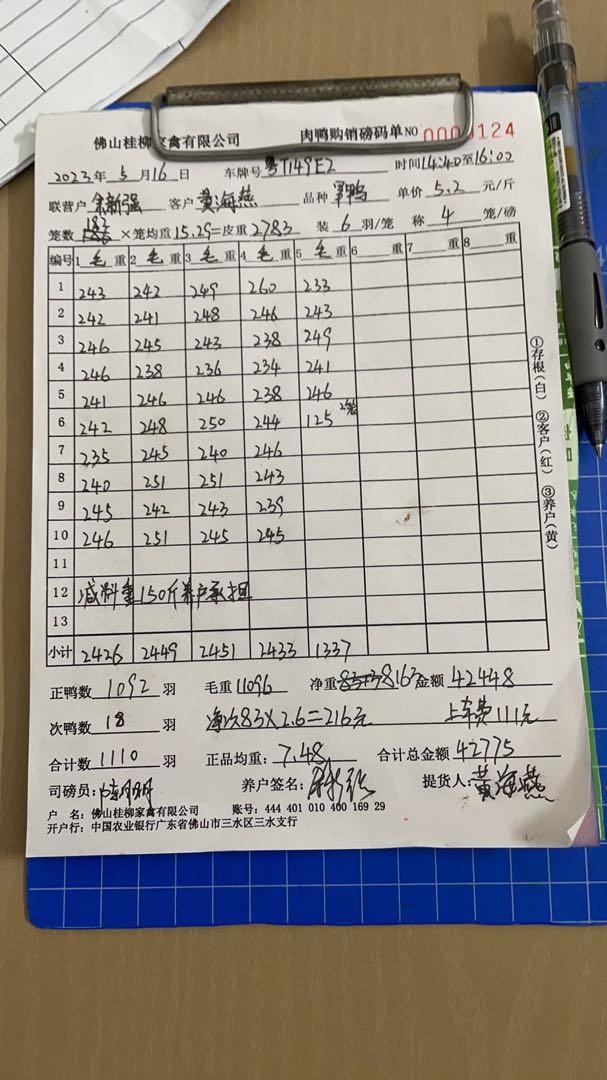 佛山桂柳家禽有限公司 肉鸭购销磅码单 NO 0000124
2023年 5月16日 车牌号 粤T149E2 时间14:40至16:00
联营户 余新强 客户 黄海燕 品种 鸭 单价 5.2 元/斤
笼数 182 ×笼均重 15.29=皮重 2783 装 6 羽/笼 称 4 笼/磅
编号 1 毛 重 2 毛 重 3 毛 重 4 毛 重 5 毛 重 6 重 7 重 8 重
1 243 242 249 260 233
2 242 241 248 246 243
3 246 245 243 238 249
4 246 238 236 234 241
5 241 246 246 238 246
6 242 248 250 244 125 2笼
7 235 245 240 246
8 240 251 251 243
9 245 242 243 239
10 246 251 245 245
11
12 减料重150斤养户承担
13
小计 2426 2449 2451 2433 1337
正鸭数 1092 羽 毛重 11096 净重 8163 金额 42448
次鸭数 18 羽 净次83×2.6=216元 上车费111元
合计数 1110 羽 正品均重: 7.48 合计总金额 42775
司磅员: 养户签名: 提货人: 黄海燕
户 名: 佛山桂柳家禽有限公司 账号: 444 401 010 400 169 29
开户行: 中国农业银行广东省佛山市三水区三水支行
①存根(白) ②客户(红) ③养户(黄)